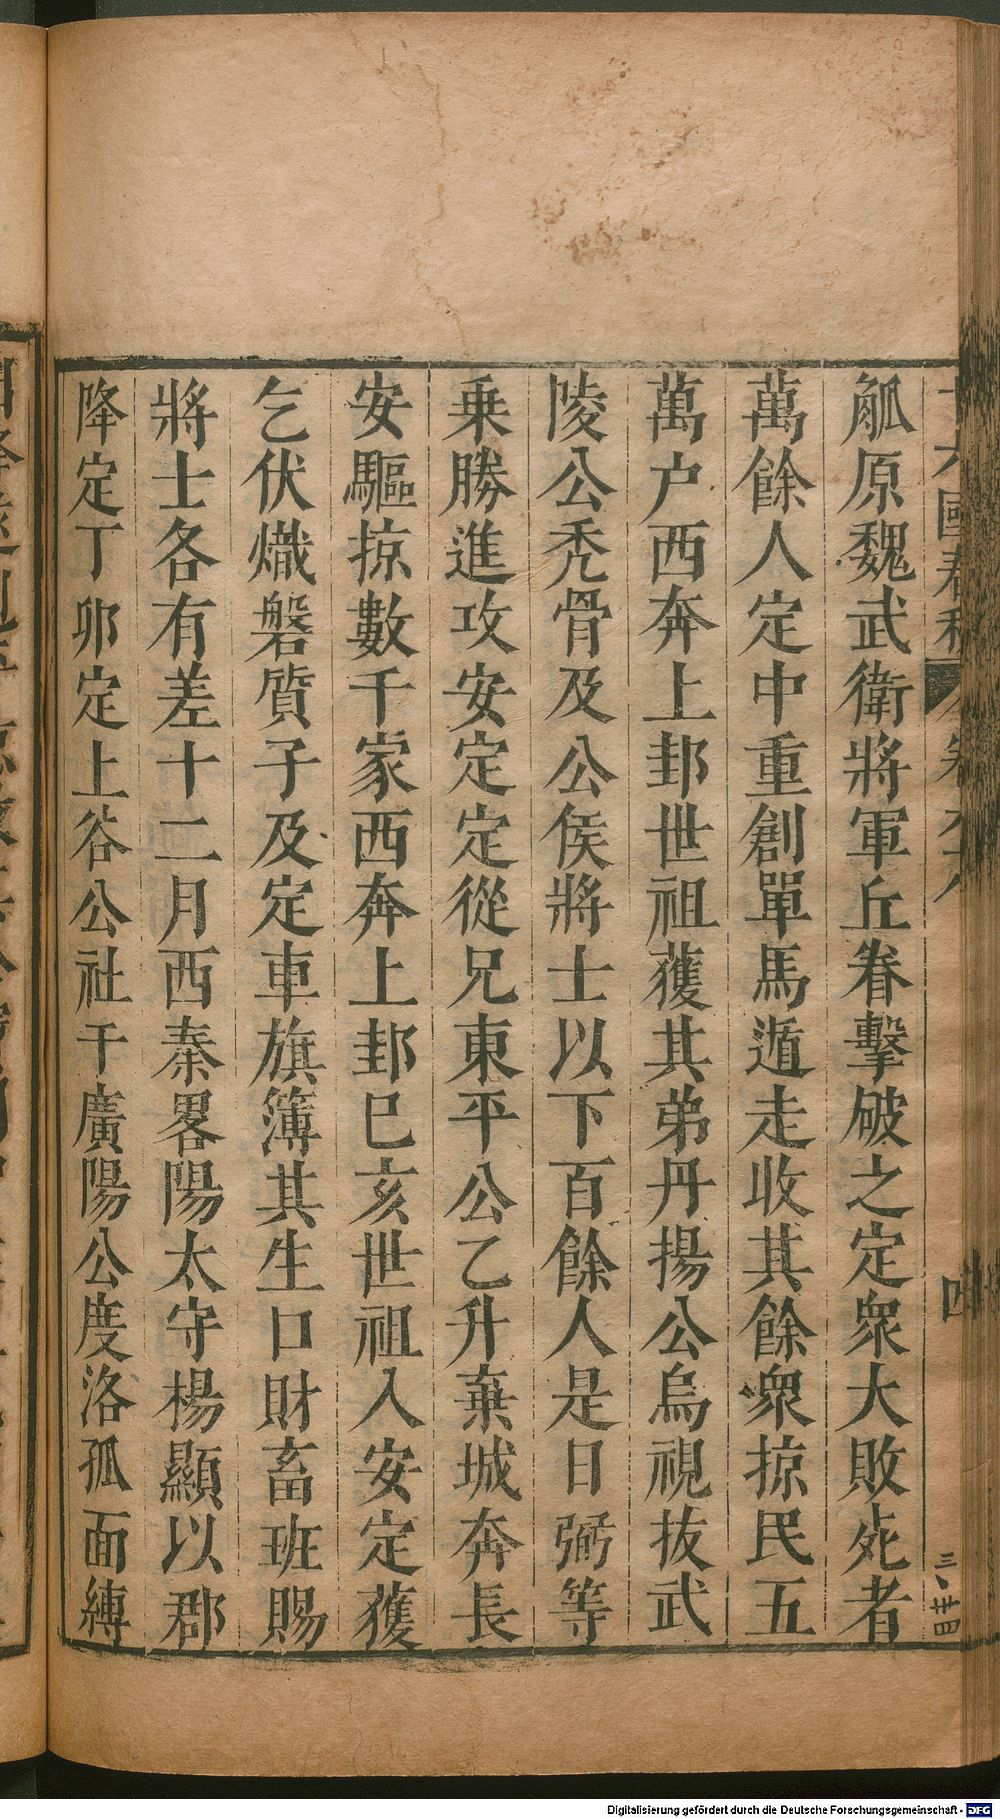 觚原魏武衛將軍丘眷擊破之定衆大敗死者
萬餘人定中重創單馬遁走收其餘衆掠民五
萬户西奔上邽世祖獲其弟丹揚公烏視拔武
陵公禿骨及公侯將士以下百餘人是日弼等
乗勝進攻安定定從兄東平公乙升棄城奔長
安驅掠數千家西奔上邽巳亥世祖入安定獲
乞伏熾磐質子及定車旗簿其生口財畜班賜
將士各有差十二月西秦畧陽太守楊顯以郡
降定丁卯定上谷公社干廣陽公度洛孤面縛
十六國春秋
四
三、廿四
Digitalisierung gefördert durch die Deutsche Forschungsgemeinschaft - DFG